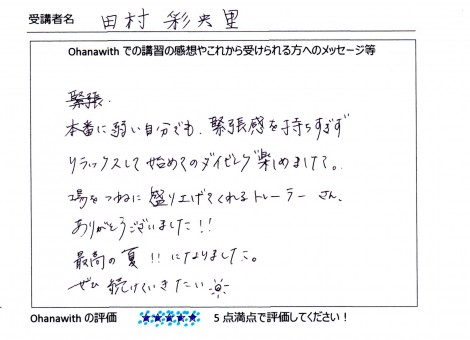 受講者名 田村 彩央里
Ohanawith での講習の感想やこれから受けられる方へのメッセージ等
緊張、
本番に弱い自分でも、緊張感を持ちすぎず
リラックスして始めてのダイビング楽しめました。
場をつねに盛り上げてくれるトレーラーさん、
ありがとうございました!!
最高の夏!!になりました。
ぜひ続けていきたい
Ohanawith の評価 ★★★★★ 5 点満点で評価してください!